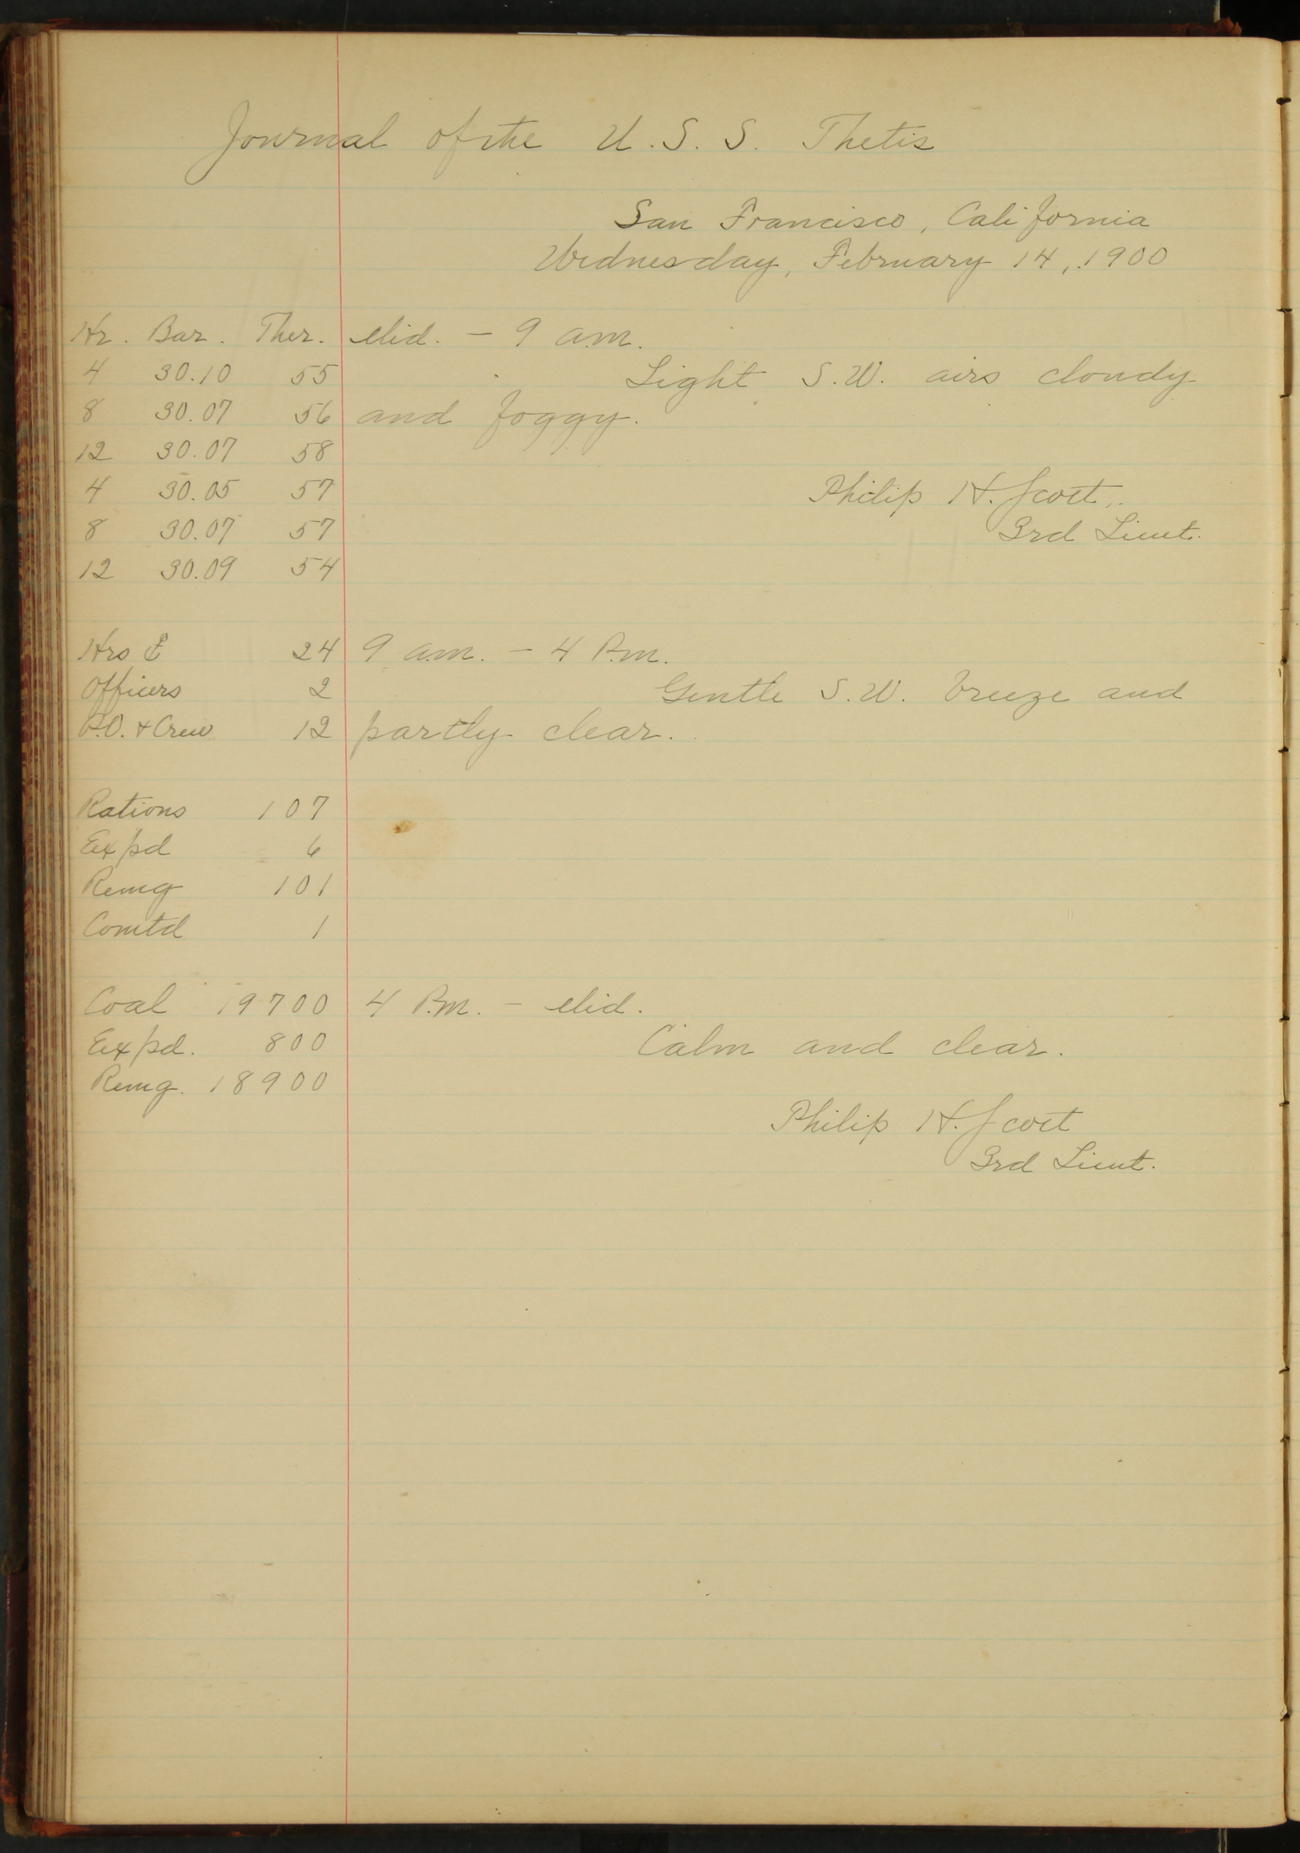 Journal of the U. S. S. Thetis
San Francisco, California
Wednesday, February 14, 1900
Hr. Bar. Ther. Mid. – 9 a.m.
4 30.10 55 Light S.W. airs cloudy
8 30.07 56 and foggy.
12 30.07 58
4 30.05 57 Philip H. Scott,
8 30.07 57 3rd Lieut.
12 30.09 54
Hrs 24 9 a.m. – 4 P.m.
Officers 2 Gentle S.W. breeze and
P.O. & Crew 12 partly clear.
Rations 107
Expd 6
Remg 101
Comtd 1
Coal 19700 4 P.m. – Mid.
Expd. 800 Calm and clear.
Remg. 18900
Philip H. Scott
3rd Lieut.